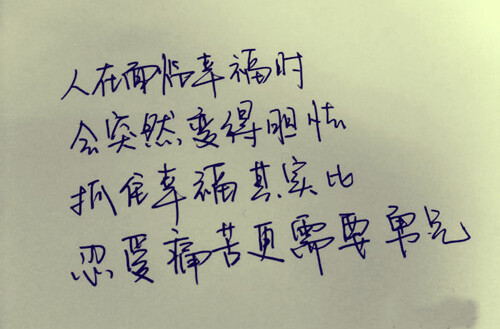 人在面临幸福时
会突然变得胆怯
抓住幸福其实比
忍受痛苦更需要勇气